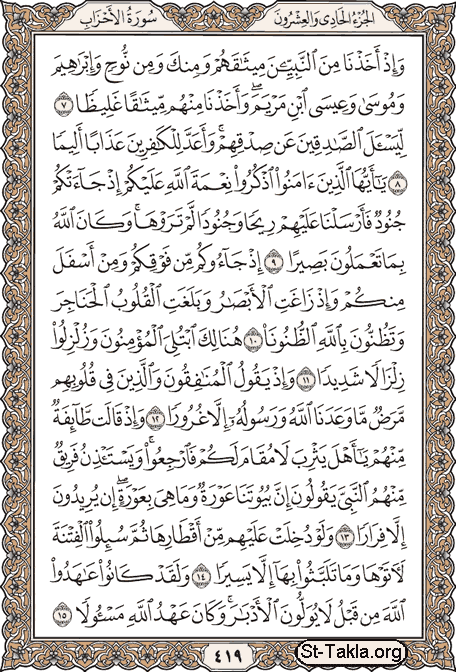 سُورَةُ الأَحْزَابِ
الجُزْءُ الحَادِى وَالعِشْرُونَ
وَإِذْ أَخَذْنَا مِنَ ٱلنَّبِيِّـۧنَ مِيثَـٰقَهُمْ وَمِنكَ وَمِن نُّوحٍ وَإِبْرَٰهِيمَ
وَمُوسَىٰ وَعِيسَى ٱبْنِ مَرْيَمَ ۖ وَأَخَذْنَا مِنْهُم مِّيثَـٰقًا غَلِيظًا ٧
لِّيَسْـَٔلَ ٱلصَّـٰدِقِينَ عَن صِدْقِهِمْ ۚ وَأَعَدَّ لِلْكَـٰفِرِينَ عَذَابًا أَلِيمًا
٨ يَـٰٓأَيُّهَا ٱلَّذِينَ ءَامَنُوا۟ ٱذْكُرُوا۟ نِعْمَةَ ٱللَّهِ عَلَيْكُمْ إِذْ جَآءَتْكُمْ
جُنُودٌ فَأَرْسَلْنَا عَلَيْهِمْ رِيحًا وَجُنُودًا لَّمْ تَرَوْهَا ۚ وَكَانَ ٱللَّهُ
بِمَا تَعْمَلُونَ بَصِيرًا ٩ إِذْ جَآءُوكُم مِّن فَوْقِكُمْ وَمِنْ أَسْفَلَ
مِنكُمْ وَإِذْ زَاغَتِ ٱلْأَبْصَـٰرُ وَبَلَغَتِ ٱلْقُلُوبُ ٱلْحَنَاجِرَ
وَتَظُنُّونَ بِٱللَّهِ ٱلظُّنُونَا۠ ١٠ هُنَالِكَ ٱبْتُلِىَ ٱلْمُؤْمِنُونَ وَزُلْزِلُوا۟
زِلْزَالًا شَدِيدًا ١١ وَإِذْ يَقُولُ ٱلْمُنَـٰفِقُونَ وَٱلَّذِينَ فِى قُلُوبِهِم
مَّرَضٌ مَّا وَعَدَنَا ٱللَّهُ وَرَسُولُهُۥٓ إِلَّا غُرُورًا ١٢ وَإِذْ قَالَت طَّآئِفَةٌ
مِّنْهُمْ يَـٰٓأَهْلَ يَثْرِبَ لَا مُقَامَ لَكُمْ فَٱرْجِعُوا۟ ۚ وَيَسْتَـْٔذِنُ فَرِيقٌ
مِّنْهُمُ ٱلنَّبِىَّ يَقُولُونَ إِنَّ بُيُوتَنَا عَوْرَةٌ وَمَا هِىَ بِعَوْرَةٍ ۖ إِن يُرِيدُونَ
إِلَّا فِرَارًا ١٣ وَلَوْ دُخِلَتْ عَلَيْهِم مِّنْ أَقْطَارِهَا ثُمَّ سُئِلُوا۟ ٱلْفِتْنَةَ
لَـَٔاتَوْهَا وَمَا تَلَبَّثُوا۟ بِهَآ إِلَّا يَسِيرًا ١٤ وَلَقَدْ كَانُوا۟ عَـٰهَدُوا۟
ٱللَّهَ مِن قَبْلُ لَا يُوَلُّونَ ٱلْأَدْبَـٰرَ ۚ وَكَانَ عَهْدُ ٱللَّهِ مَسْـُٔولًا ١٥
٤١٩
St-Takla.org